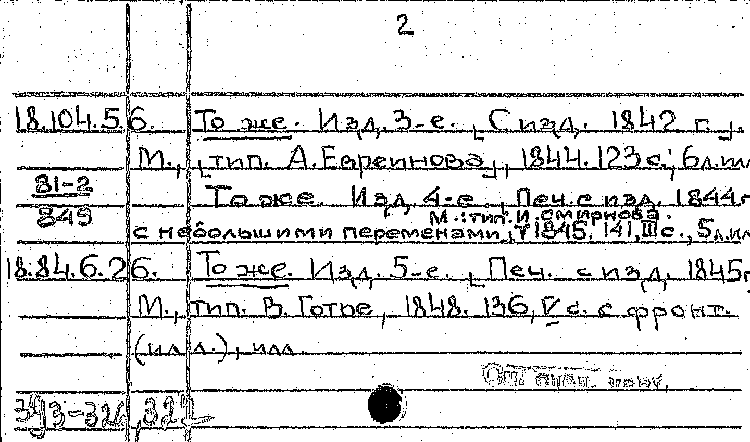 2
18.104.5.6. То же. Изд. 3-е. [С изд. 1842 г.].
М., [тип. А. Евреинова], 1844. 123 с.; 6 л. ил
81-2 То же. Изд. 4-е [Печ. с изд. 1844 г
849 М.: тип. И. Смирнова.
с небольшими переменами], 1845. 141, III с., 5 л. ил
18.84.6.26. То же. Изд. 5-е. [Печ. с изд. 1845 г
М., тип. В. Готье, 1848. 136, V с. с фронт.
(ил л.), илл.